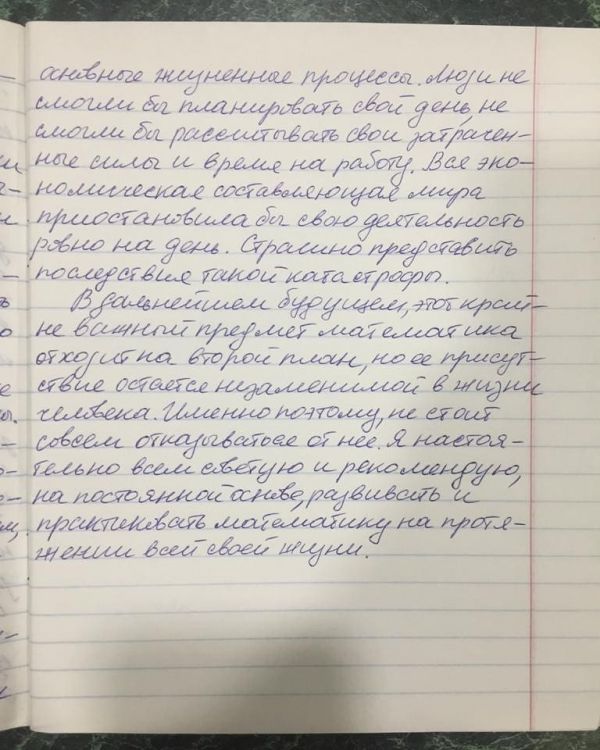 основные жизненные процессы. Люди не
смогли бы планировать свой день, не
смогли бы рассчитывать свои затрачен-
ные силы и время на работу. Вся эко-
номическая составляющая мира
приостановила бы свою деятельность
ровно на день. Страшно представить
последствия такой катастрофы.
В дальнейшем будущем, этот край-
не важный предмет математика
отходит на второй план, но ее присут-
ствие остается незаменимой в жизни
человека. Именно поэтому, не стоит
совсем отказываться от нее. Я настоя-
тельно всем советую и рекомендую,
на постоянной основе, развивать и
практиковать математику на протя-
жении всей своей жизни.